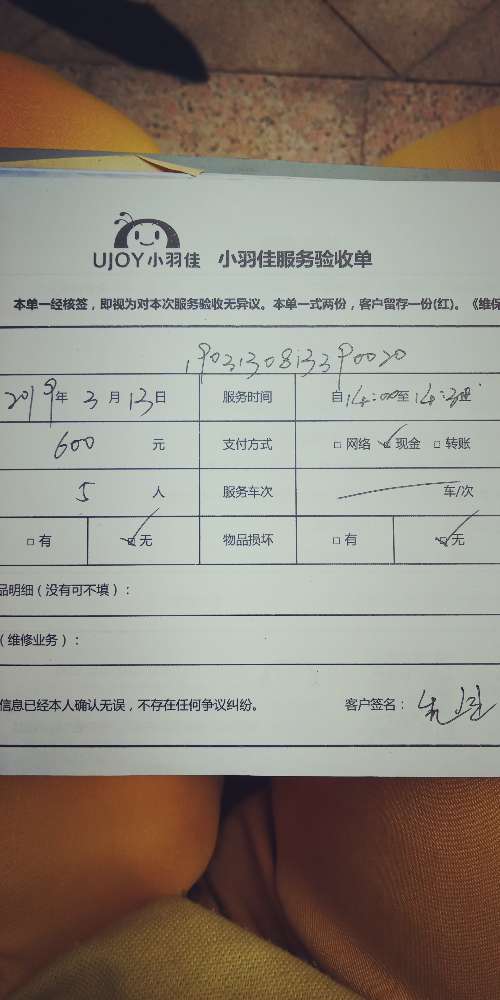 UJOY小羽佳 小羽佳服务验收单
本单一经核签，即视为对本次服务验收无异议。本单一式两份，客户留存一份(红)。《维保
1903130813390020
2019年 3月 13日 服务时间 自14:00至14:30
600 元 支付方式 □ 网络 ☑ 现金 □ 转账
5 人 服务车次 车/次
□ 有 ☑ 无 物品损坏 □ 有 ☑ 无
品明细（没有可不填）：
（维修业务）：
信息已经本人确认无误，不存在任何争议纠纷。 客户签名：